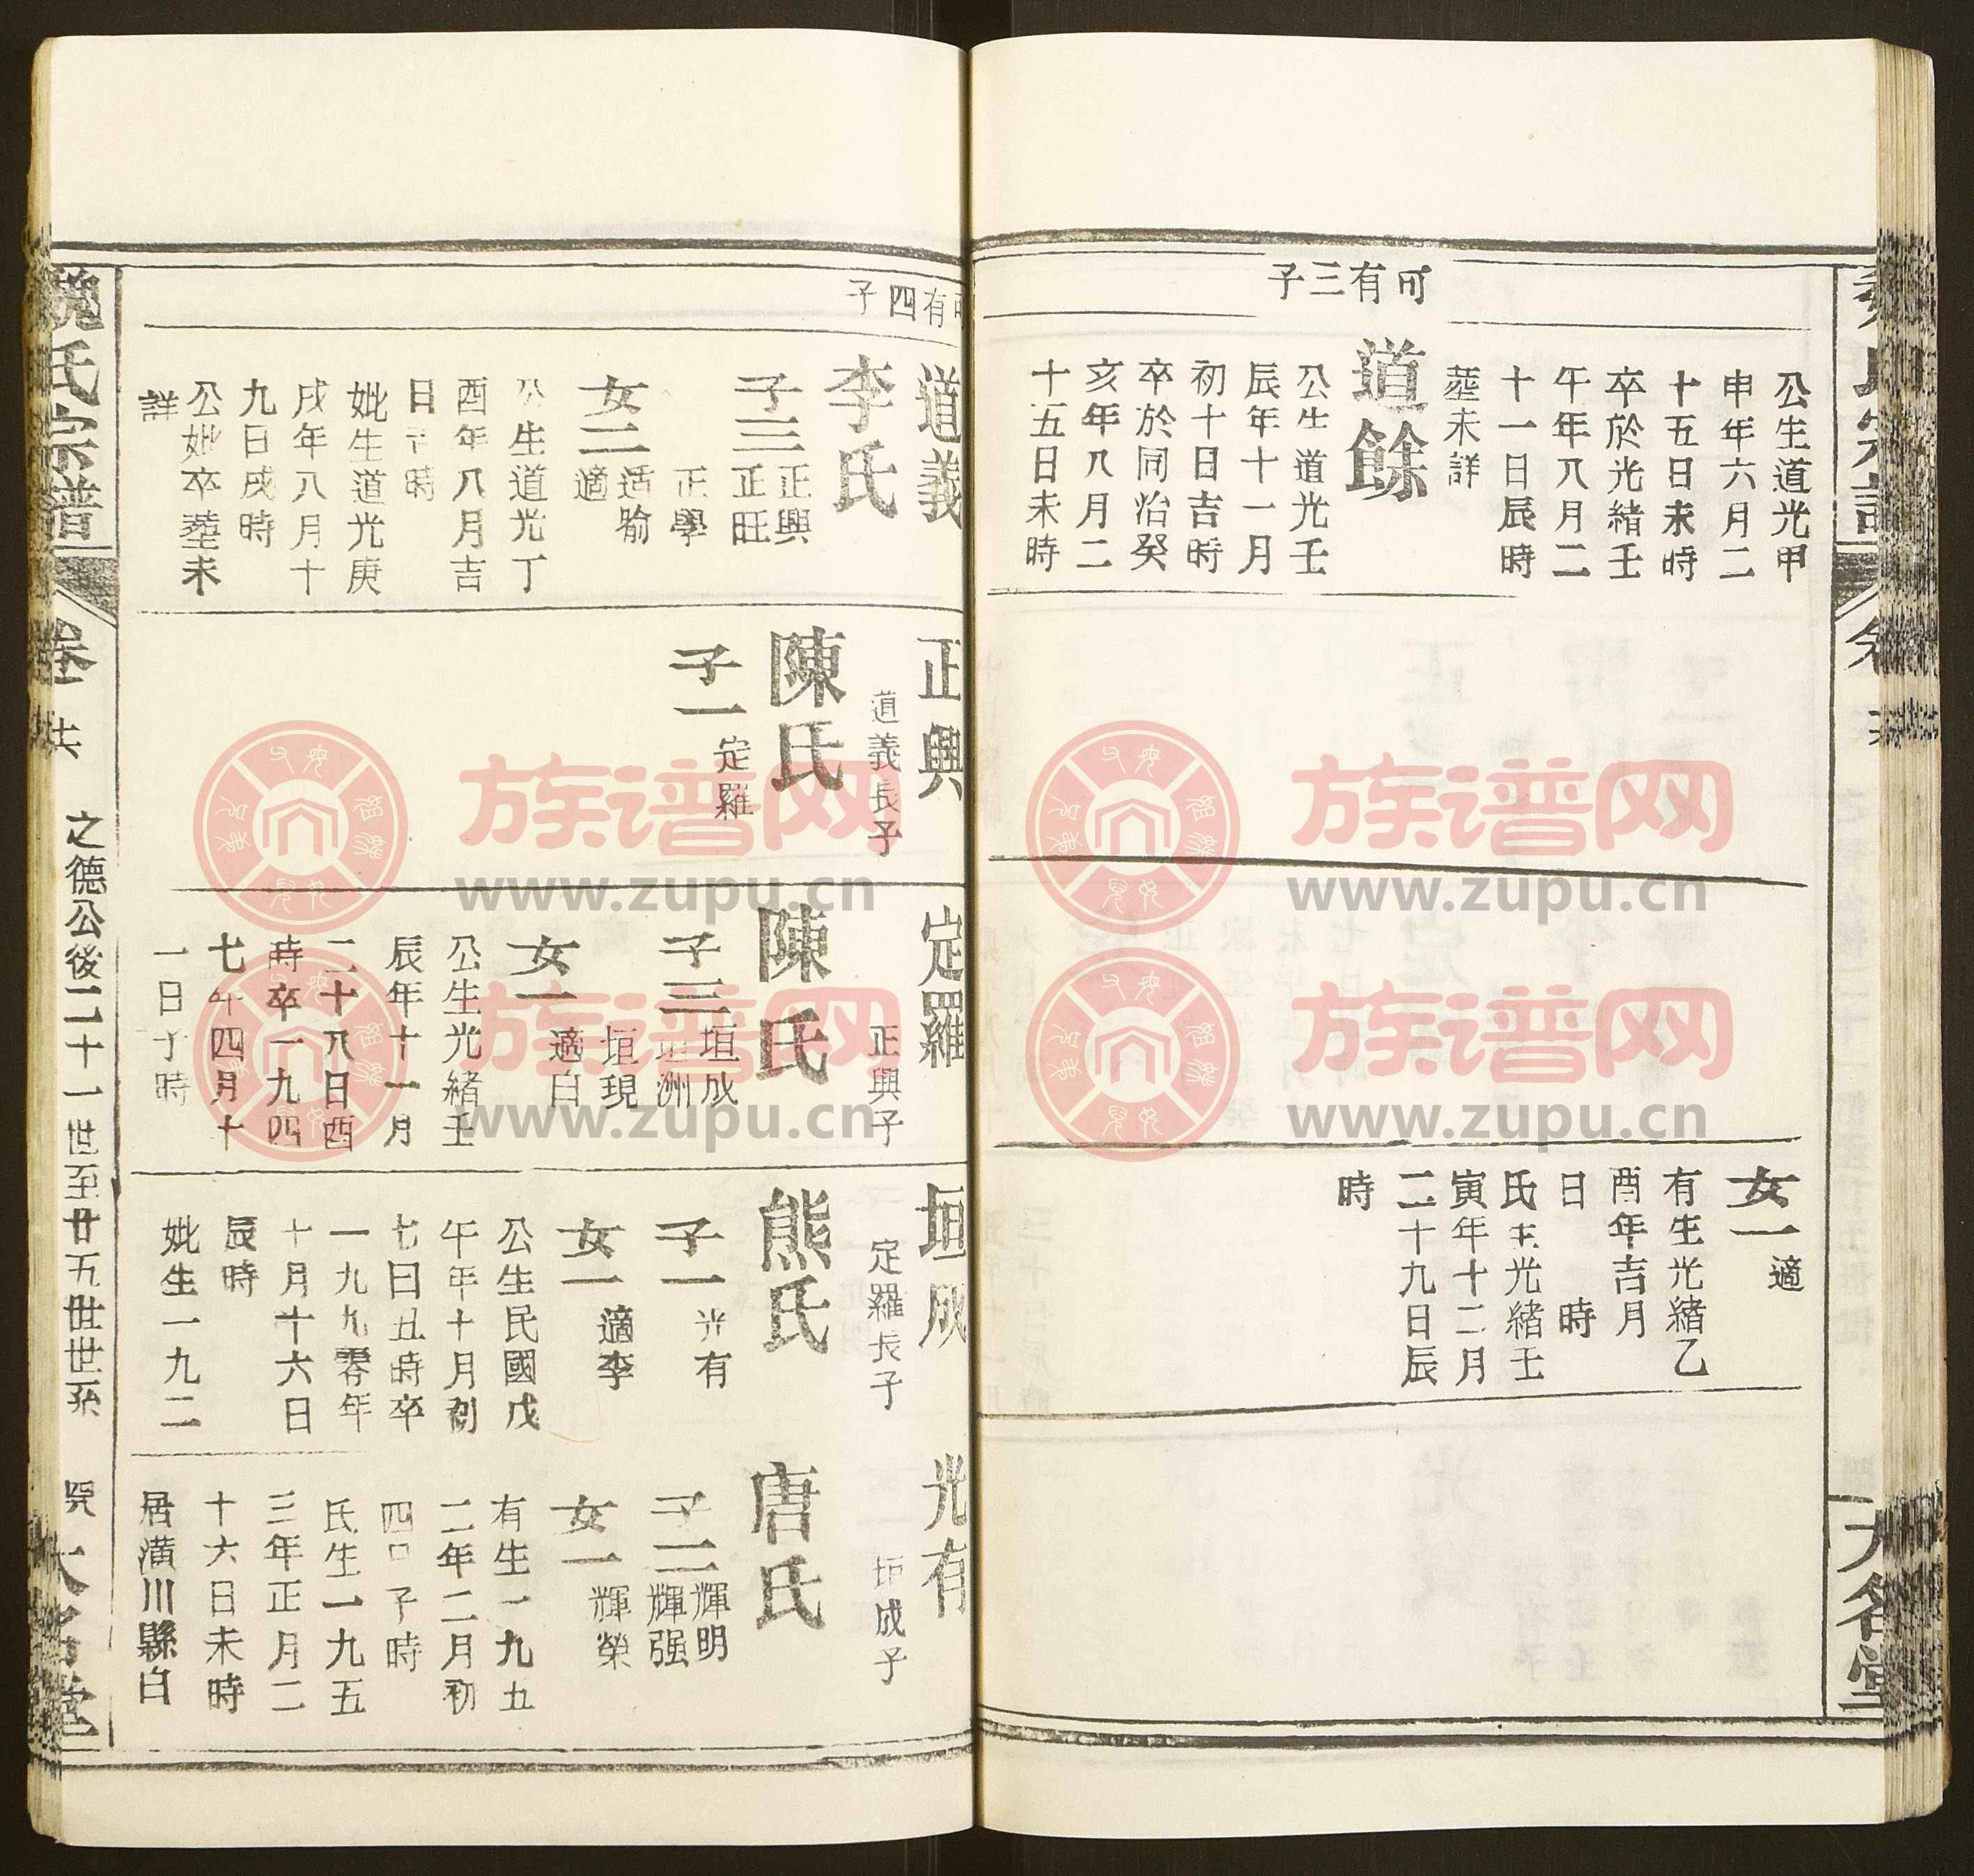 公生道光甲
申年六月二
十五日未時
卒於光緒壬
午年八月二
十一日辰時
塟未詳
可有三子
道餘
公生道光壬
辰年十一月
初十日吉時
卒於同治癸
亥年八月二
十五日未時
女一適
有生光緒乙
酉年吉月
日 時
氏生光緒壬
寅年十二月
二十九日辰
時
大名堂
可有四子
道義
李氏
子三
正興
正旺
正學
女二
适喻
適
公生道光丁
酉年八月吉
日吉時
妣生道光庚
戌年八月十
九日戌時
公妣卒塟未
詳
正興
道義長子
陳氏
子一
定羅
定羅
正興子
陳氏
子三
垣成
垣洲
垣現
女一
適白
公生光緒壬
辰年十一月
二十八日酉
時卒一九四
七年四月十
一日子時
垣成
定羅長子
熊氏
子一
光有
女一
適李
公生民國戊
午年十月初
七日丑時卒
一九九零年
十月十六日
辰時
妣生一九二
光有
垣成子
唐氏
子二
輝明
輝强
女一
輝榮
有生一九五
二年二月初
四日子時
氏生一九五
三年正月二
十六日未時
居潢川縣白
魏氏宗譜
卷
之德公後二十一世至廿五世世系
大名堂
族谱网
www.zupu.cn
族谱网
www.zupu.cn
族谱网
www.zupu.cn
族谱网
www.zupu.cn